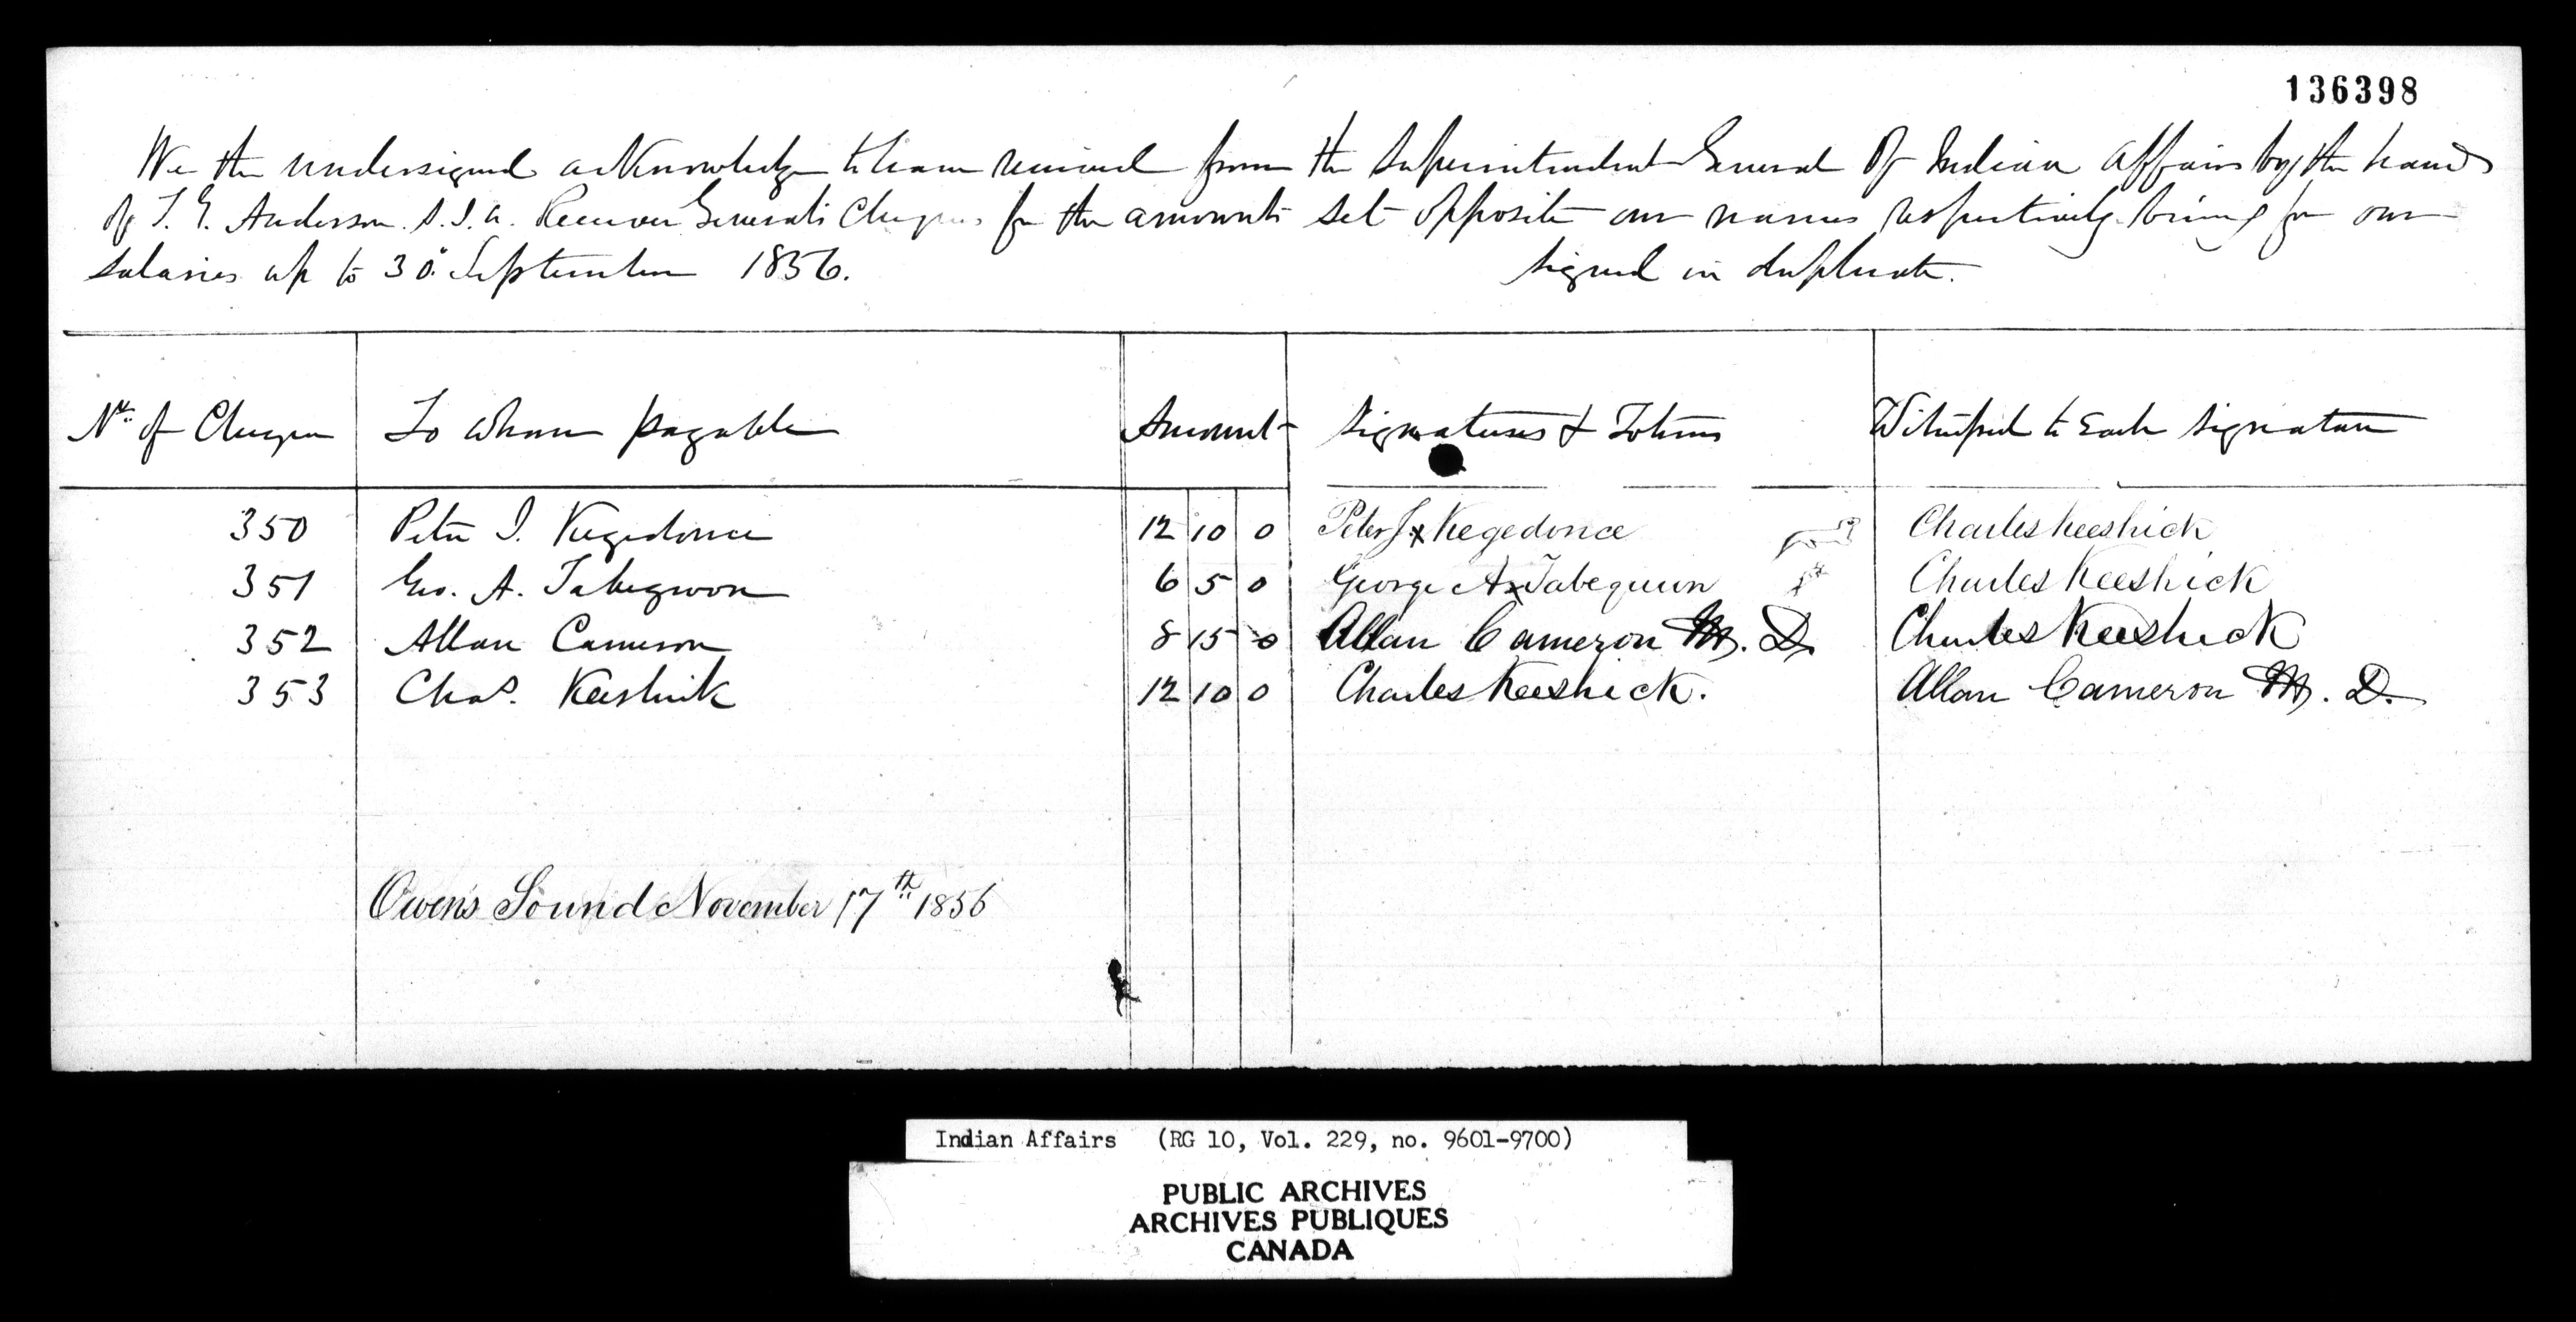 136398
We the undersigned acknowledge to have received from the Superintendent General Of Indian Affairs by the hands
of T. G. Anderson. S. I. A. Receiver General's Cheques for the amounts set opposite our names respectively being for our
salaries up to 30th September 1856. Signed in duplicate.
No. of Cheque To whom payable Amount Signatures & Totems Witnessed to Each Signature
350 Peter J. Kegedonce 12 10 0 Peter J. x Kegedonce Charles Keeshick
351 Geo. A. Tabegwon 6 5 0 George A x Tabequon Charles Keeshick
352 Allan Cameron 8 15 0 Allan Cameron M. D. Charles Keeshick
353 Chas. Keeshick 12 10 0 Charles Keeshick. Allan Cameron M. D.
Owen's Sound November 17th 1856
Indian Affairs (RG 10, Vol. 229, no. 9601-9700)
PUBLIC ARCHIVES
ARCHIVES PUBLIQUES
CANADA